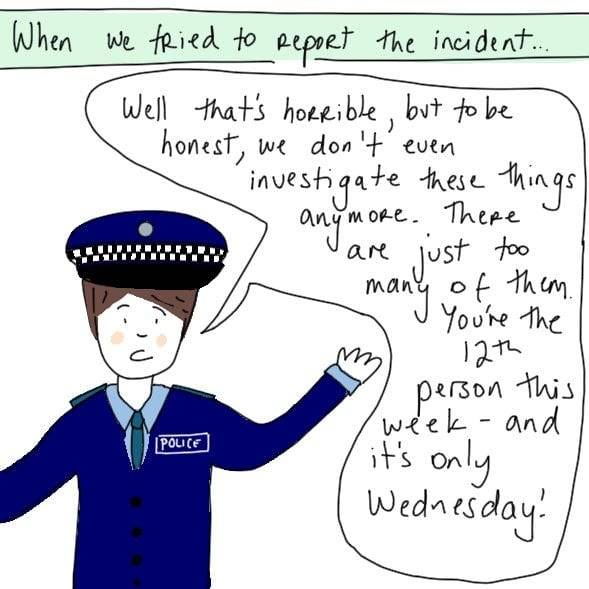 When we tried to report the incident...
Well that's horrible, but to be
honest, we don't even
investigate these things
anymore. There
are just too
many of them.
You're the
12th
person this
week - and
it's only
Wednesday!
POLICE